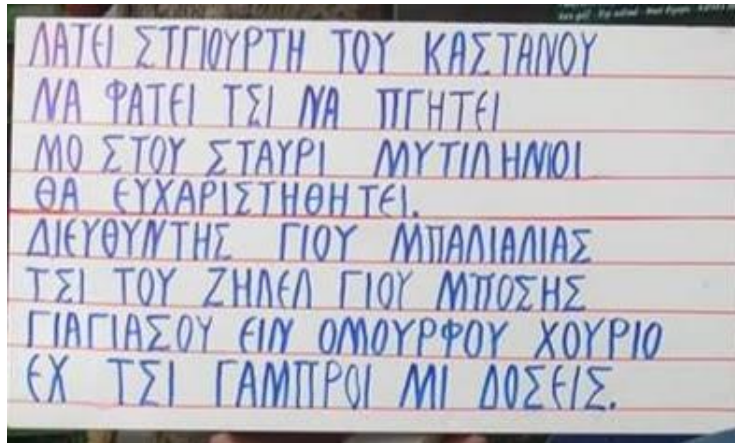 ΛΑΤΕΙ ΣΤΓΙΟΥΡΤΗ ΤΟΥ ΚΑΣΤΑΝΟΥ
ΝΑ ΦΑΤΕΙ ΤΣΙ ΝΑ ΠΓΗΤΕΙ
ΜΟ ΣΤΟΥ ΣΤΑΥΡΙ ΜΥΤΙΛΗΝΙΟΙ
ΘΑ ΕΥΧΑΡΙΣΤΗΘΗΤΕΙ.
ΔΙΕΥΘΥΝΤΗΣ ΓΙΟΥ ΜΠΑΛΙΑΛΙΑΣ
ΤΣΙ ΤΟΥ ΖΗΛΕΛ ΓΙΟΥ ΜΠΟΣΗΣ
ΓΙΑΓΙΑΣΟΥ ΕΙΝ ΟΜΟΥΡΦΟΥ ΧΟΥΡΙΟ
ΕΧ ΤΣΙ ΓΑΜΠΡΟΙ ΜΙ ΔΟΣΕΙΣ.